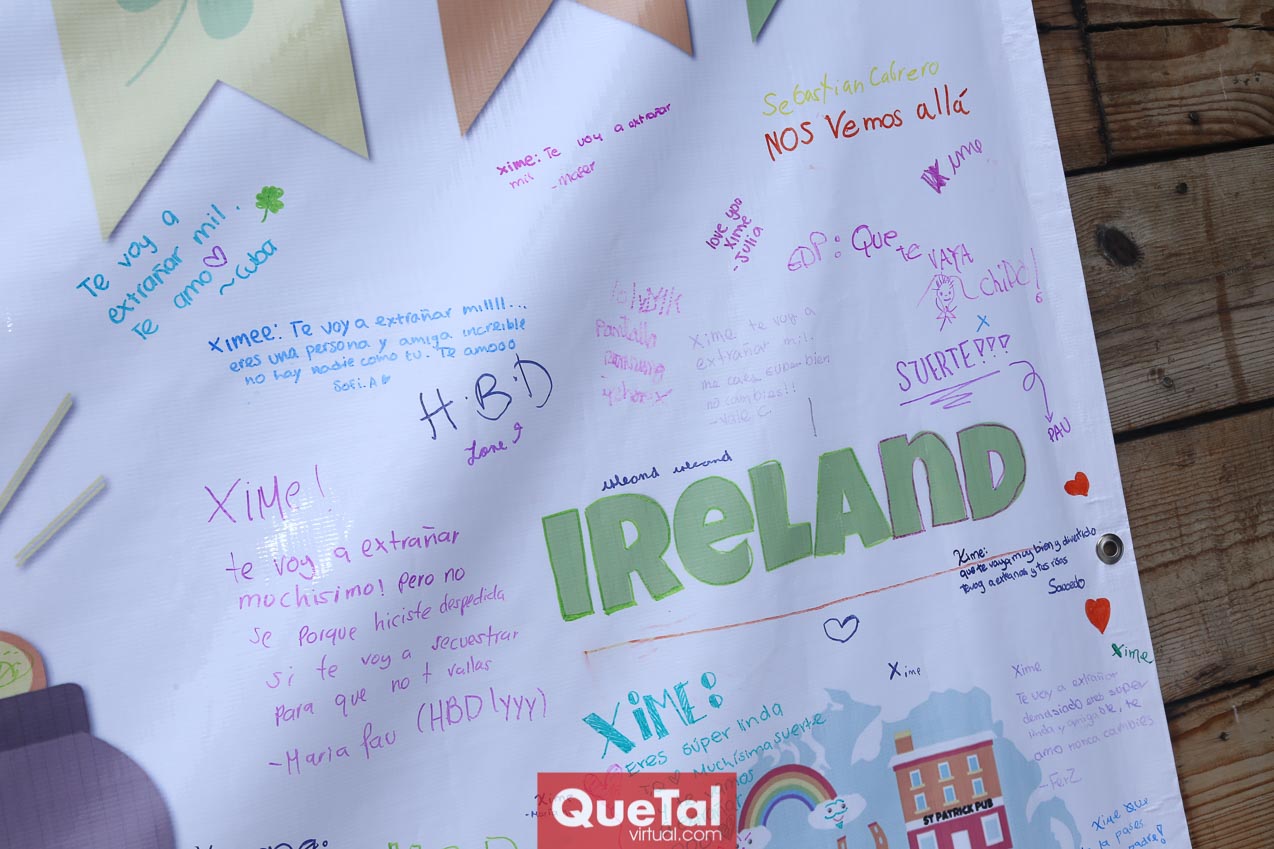 Sebastian Cabrero
NOS Vemos allá
Xime: Te voy a extrañar
mil -Mafer
Xime
love you
Xime
-Julia
Te voy a
extrañar mil.
Te amo
~Cuba
EDP: Que te
VAYA
CHIDO!
Ximee: Te voy a extrañar millll...
eres una persona y amiga increible
no hay nadie como tu. Te amooo
Sofi.A
H.B.D
Love
Pantalla
Xime te voy a
extrañar mil.
me caes super bien
no cambies!!
-Vale C
SUERTE!!!
PAU
IRELAND
XIME!
te voy a extrañar
muchisimo! Pero no
se porque hiciste despedida
si te voy a secuestrar
para que no t vallas
-Maria fau (HBD!yyy)
Xime:
que te vaya muy bien y divertido
Xime
Xime
XIME:
Eres súper linda
Muchísima suerte
Xime
Te voy a extrañar
demasiado eres super
linda y amigable, te
amo nunca cambies
-FerZ
ST PATRICK PUB
QueTal
virtual.com